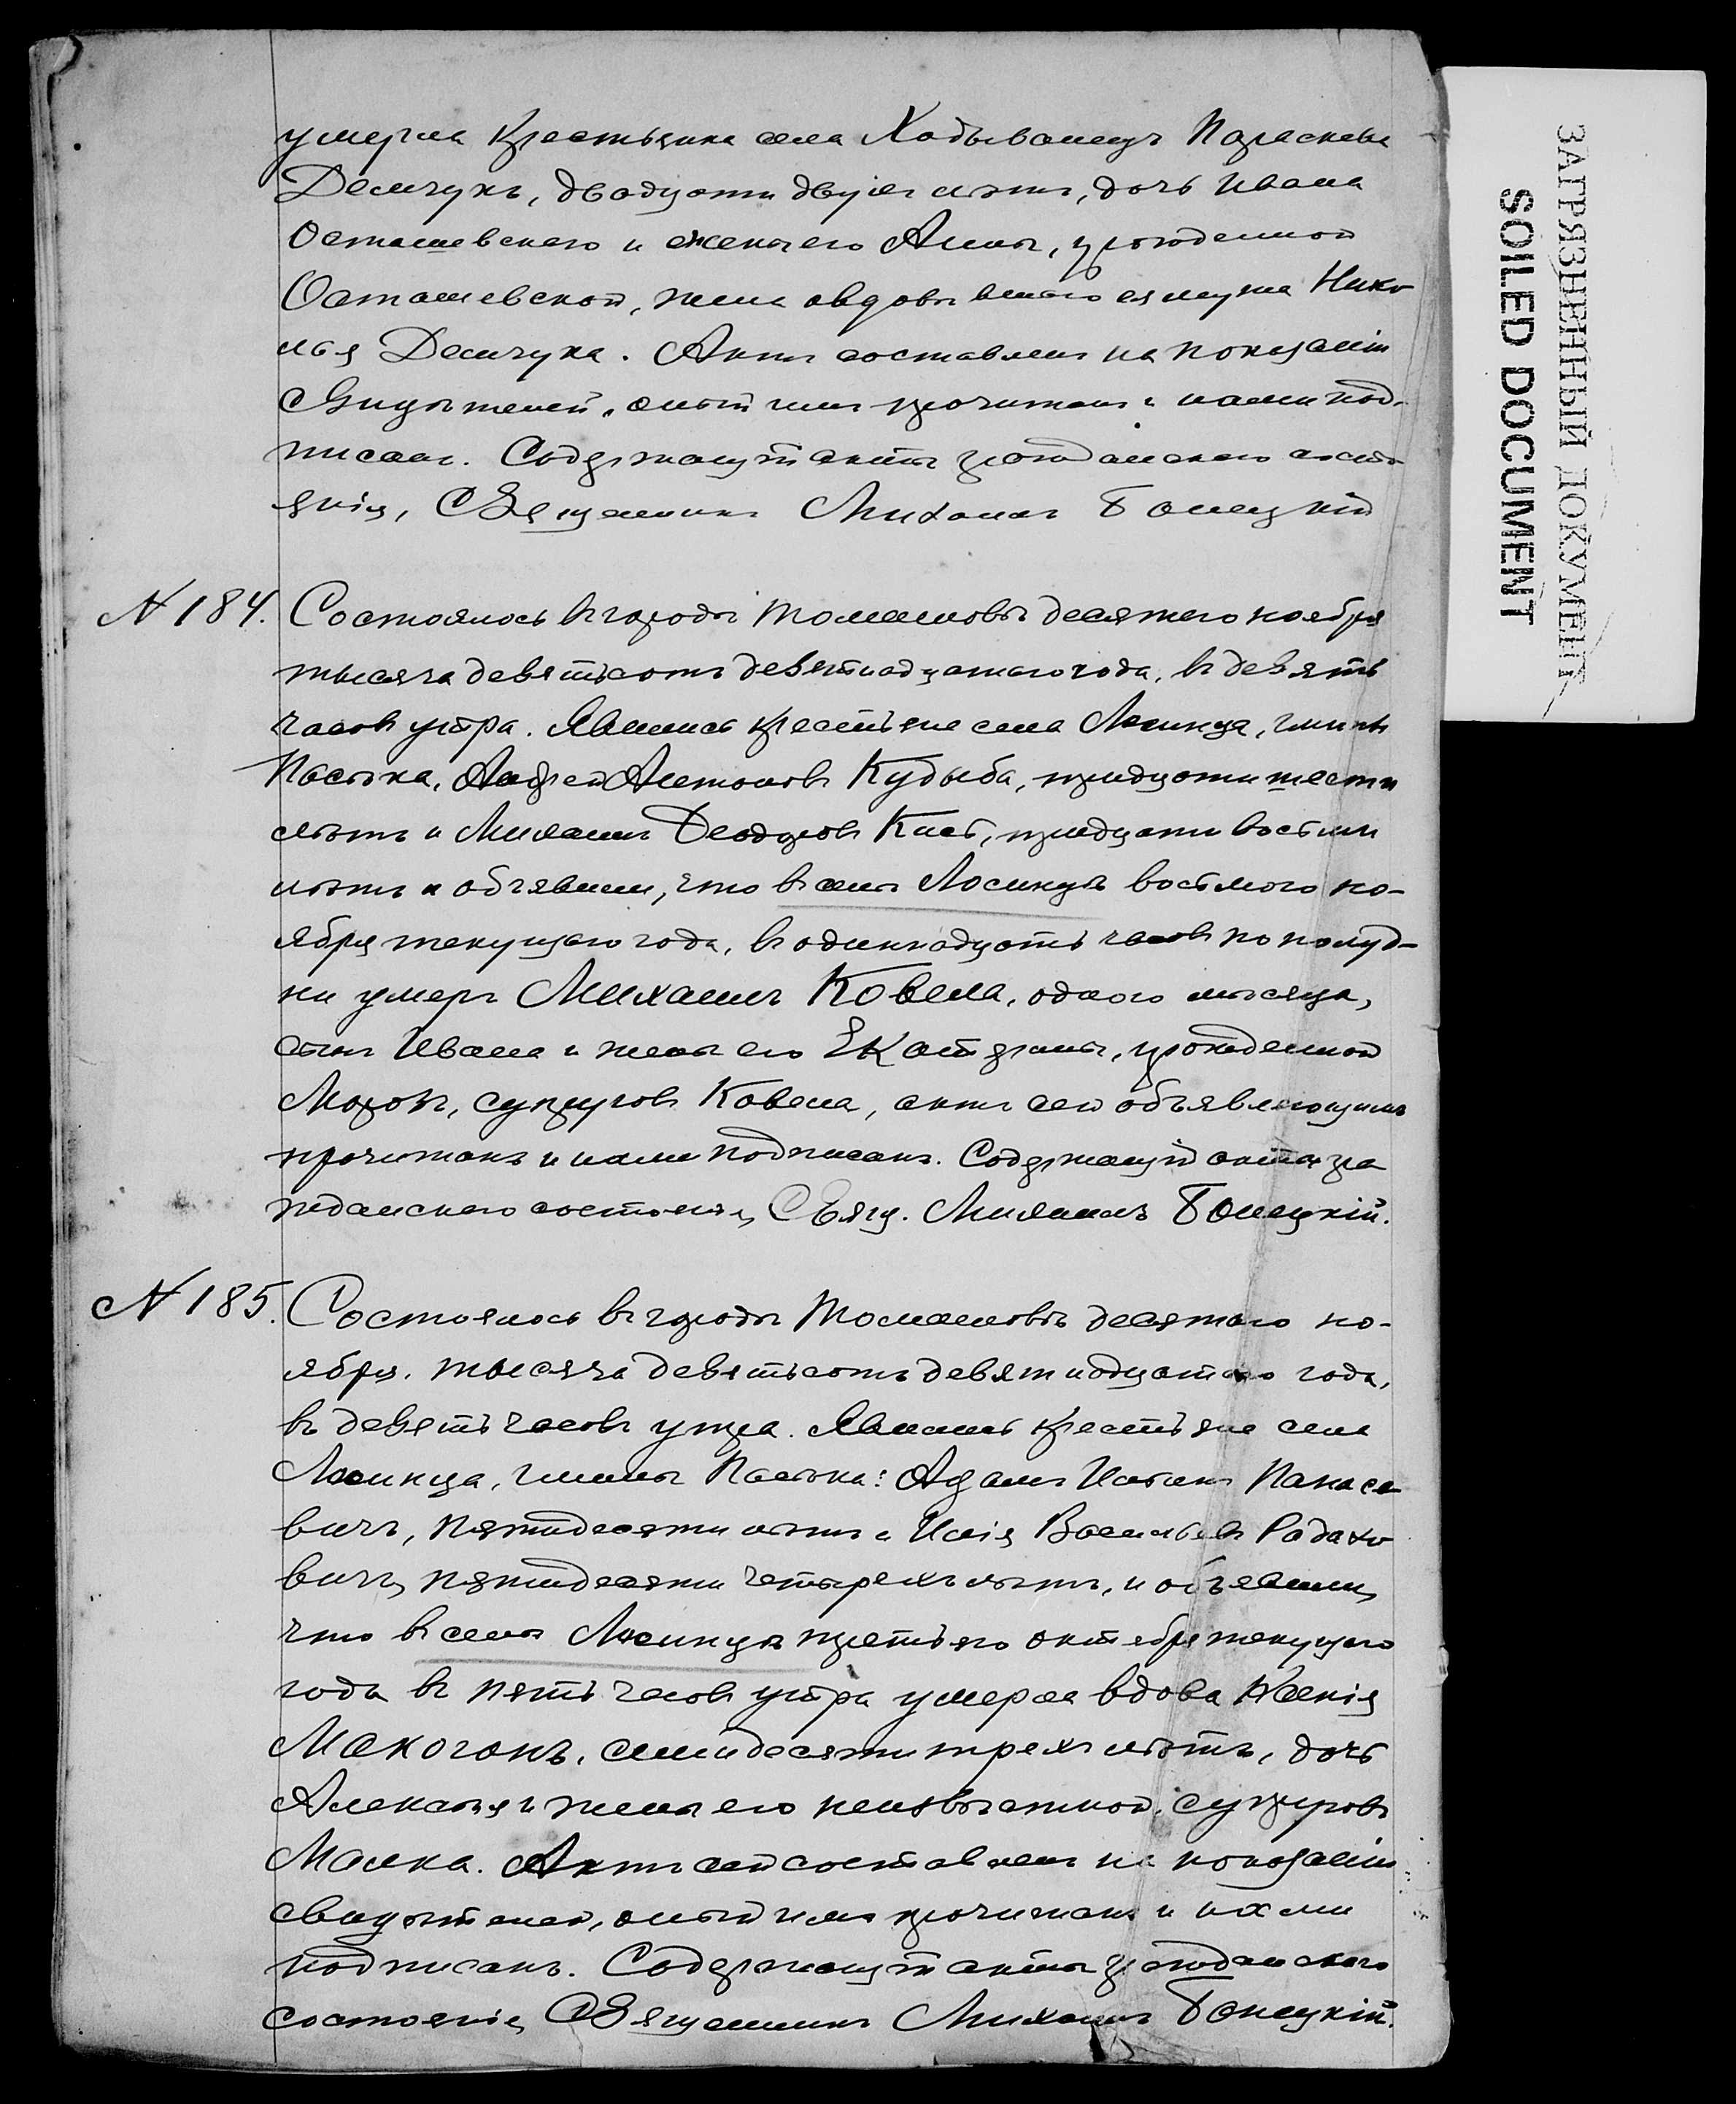 умерла крестьянка села Ходыванецъ Параскева
Демчукъ, двадцати двухъ лѣтъ, дочь Ивана
Осташевскаго и жены его Анны, урожденной
Осташевской, жена овдовѣвшаго ея мужа Нико-
лая Демчука. Актъ составленъ на показаніи
свидѣтелей, оный имъ прочитанъ и нами под-
писанъ. Содержащій акты гражданскаго состо-
янія, Священникъ Михаилъ Бонецкій
N 184. Состоялось въ городѣ Томашовѣ десятаго ноября
тысяча девятьсотъ девятнадцатаго года, въ девять
часовъ утра. Явились крестьяне села Лосинца, гмины
Пасѣка, Андрей Антоновъ Кудыба, тридцати шести
лѣтъ и Михаилъ Теодоровъ Кисъ, тридцати восьми
лѣтъ и объявили, что въ селѣ Лосинцѣ восьмого но-
ября текущаго года, въ одиннадцать часовъ по полуд-
ни умеръ Михаилъ Ковела, одного мѣсяца,
сынъ Ивана и жены его Екатерины, урожденной
Морозъ, супруговъ Ковела, актъ сей объявляющимъ
прочитанъ и нами подписанъ. Содержащій акты гра
жданскаго состоянія, Свящ. Михаилъ Бонецкій.
N 185. Состоялось въ городѣ Томашовѣ десятаго но-
ября. тысяча девятьсотъ девятнадцатаго года,
въ девять часовъ утра. Явились крестьяне села
Лосинца, гмины Пасѣка: Адамъ Панасе
вичъ, пятидесяти лѣтъ и Илія Васильевъ Радахо
вичъ, пятидесяти четырехъ лѣтъ, и объявили,
что въ селѣ Лосинцѣ третьяго октября текущаго
года въ пять часовъ утра умерла вдова Ксенія
Макогонъ, семидесяти трехъ лѣтъ, дочь
Алексѣя и жены его неизвѣстной, супруговъ
Малка. Актъ сей составленъ на показаніи
свидѣтелей, оный имъ прочитанъ и нами
подписанъ. Содержащій акты гражданскаго
состоянія, Священникъ Михаилъ Бонецкій.
ЗАГРЯЗНЕННЫЙ ДОКУМЕНТ
SOILED DOCUMENT